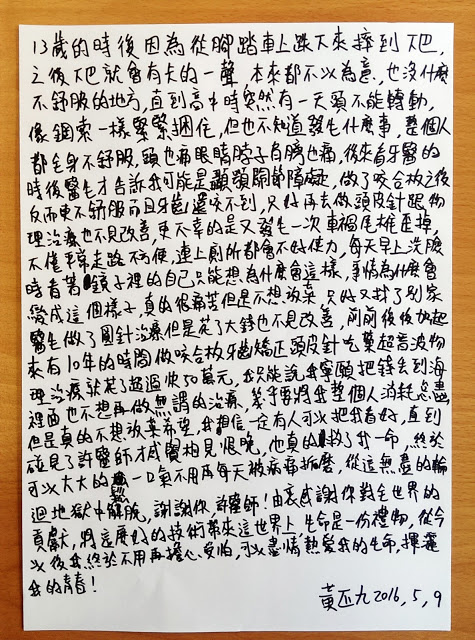 13歲的時後因為從腳踏車上跌下來摔到下巴,
之後下巴就會有卡的一聲,本來都不以為意,也沒什麼
不舒服的地方,直到高中時突然有一天頭不能轉動,
像鋼索一樣緊緊捆住,但也不知道發生什麼事,整個人
都全身不舒服,頭也痛眼睛脖子肩膀也痛,後來看牙醫的
時後醫生才告訴我可能是顳顎關節障礙,做了咬合板之後
反而更不舒服而且牙齒還咬不到,只好再去做頭皮針跟物
理治療也不見改善,更不幸的是又發生一次車禍尾椎歪掉,
不僅平常走路不方便,連上廁所都會不好使力,每天早上洗臉
時看著鏡子裡的自己只能想為什麼會這樣,事情為什麼會
變成這個樣子,真的很痛苦但是不想放棄,只好又找了別家
醫生做了圓針治療但是花了大錢也不見改善,前前後後加起
來有10年的時間做咬合板牙齒矯正頭皮針吃藥超音波物
理治療就花了超過快50萬元,我只能說我寧願把錢丟到海
裡面也不想再做無謂的治療,幾乎要將我整個人消耗怠盡
但是真的不想放棄希望,我相信一定有人可以把我看好,直到
碰見了許醫師才感覺相見恨晚,他真的救了我一命,終於
可以大大的鬆一口氣不用再每天被病痛折磨,從這無盡的輪
迴地獄中解脫,謝謝你,許醫師!由衷感謝你對全世界的
貢獻,將這麼好的技術帶來這世界上,生命是一份禮物,從今
以後我終於不用再擔心受怕,可以盡情熱愛我的生命,揮灑
我的青春!
黃丕九 2016,5,9